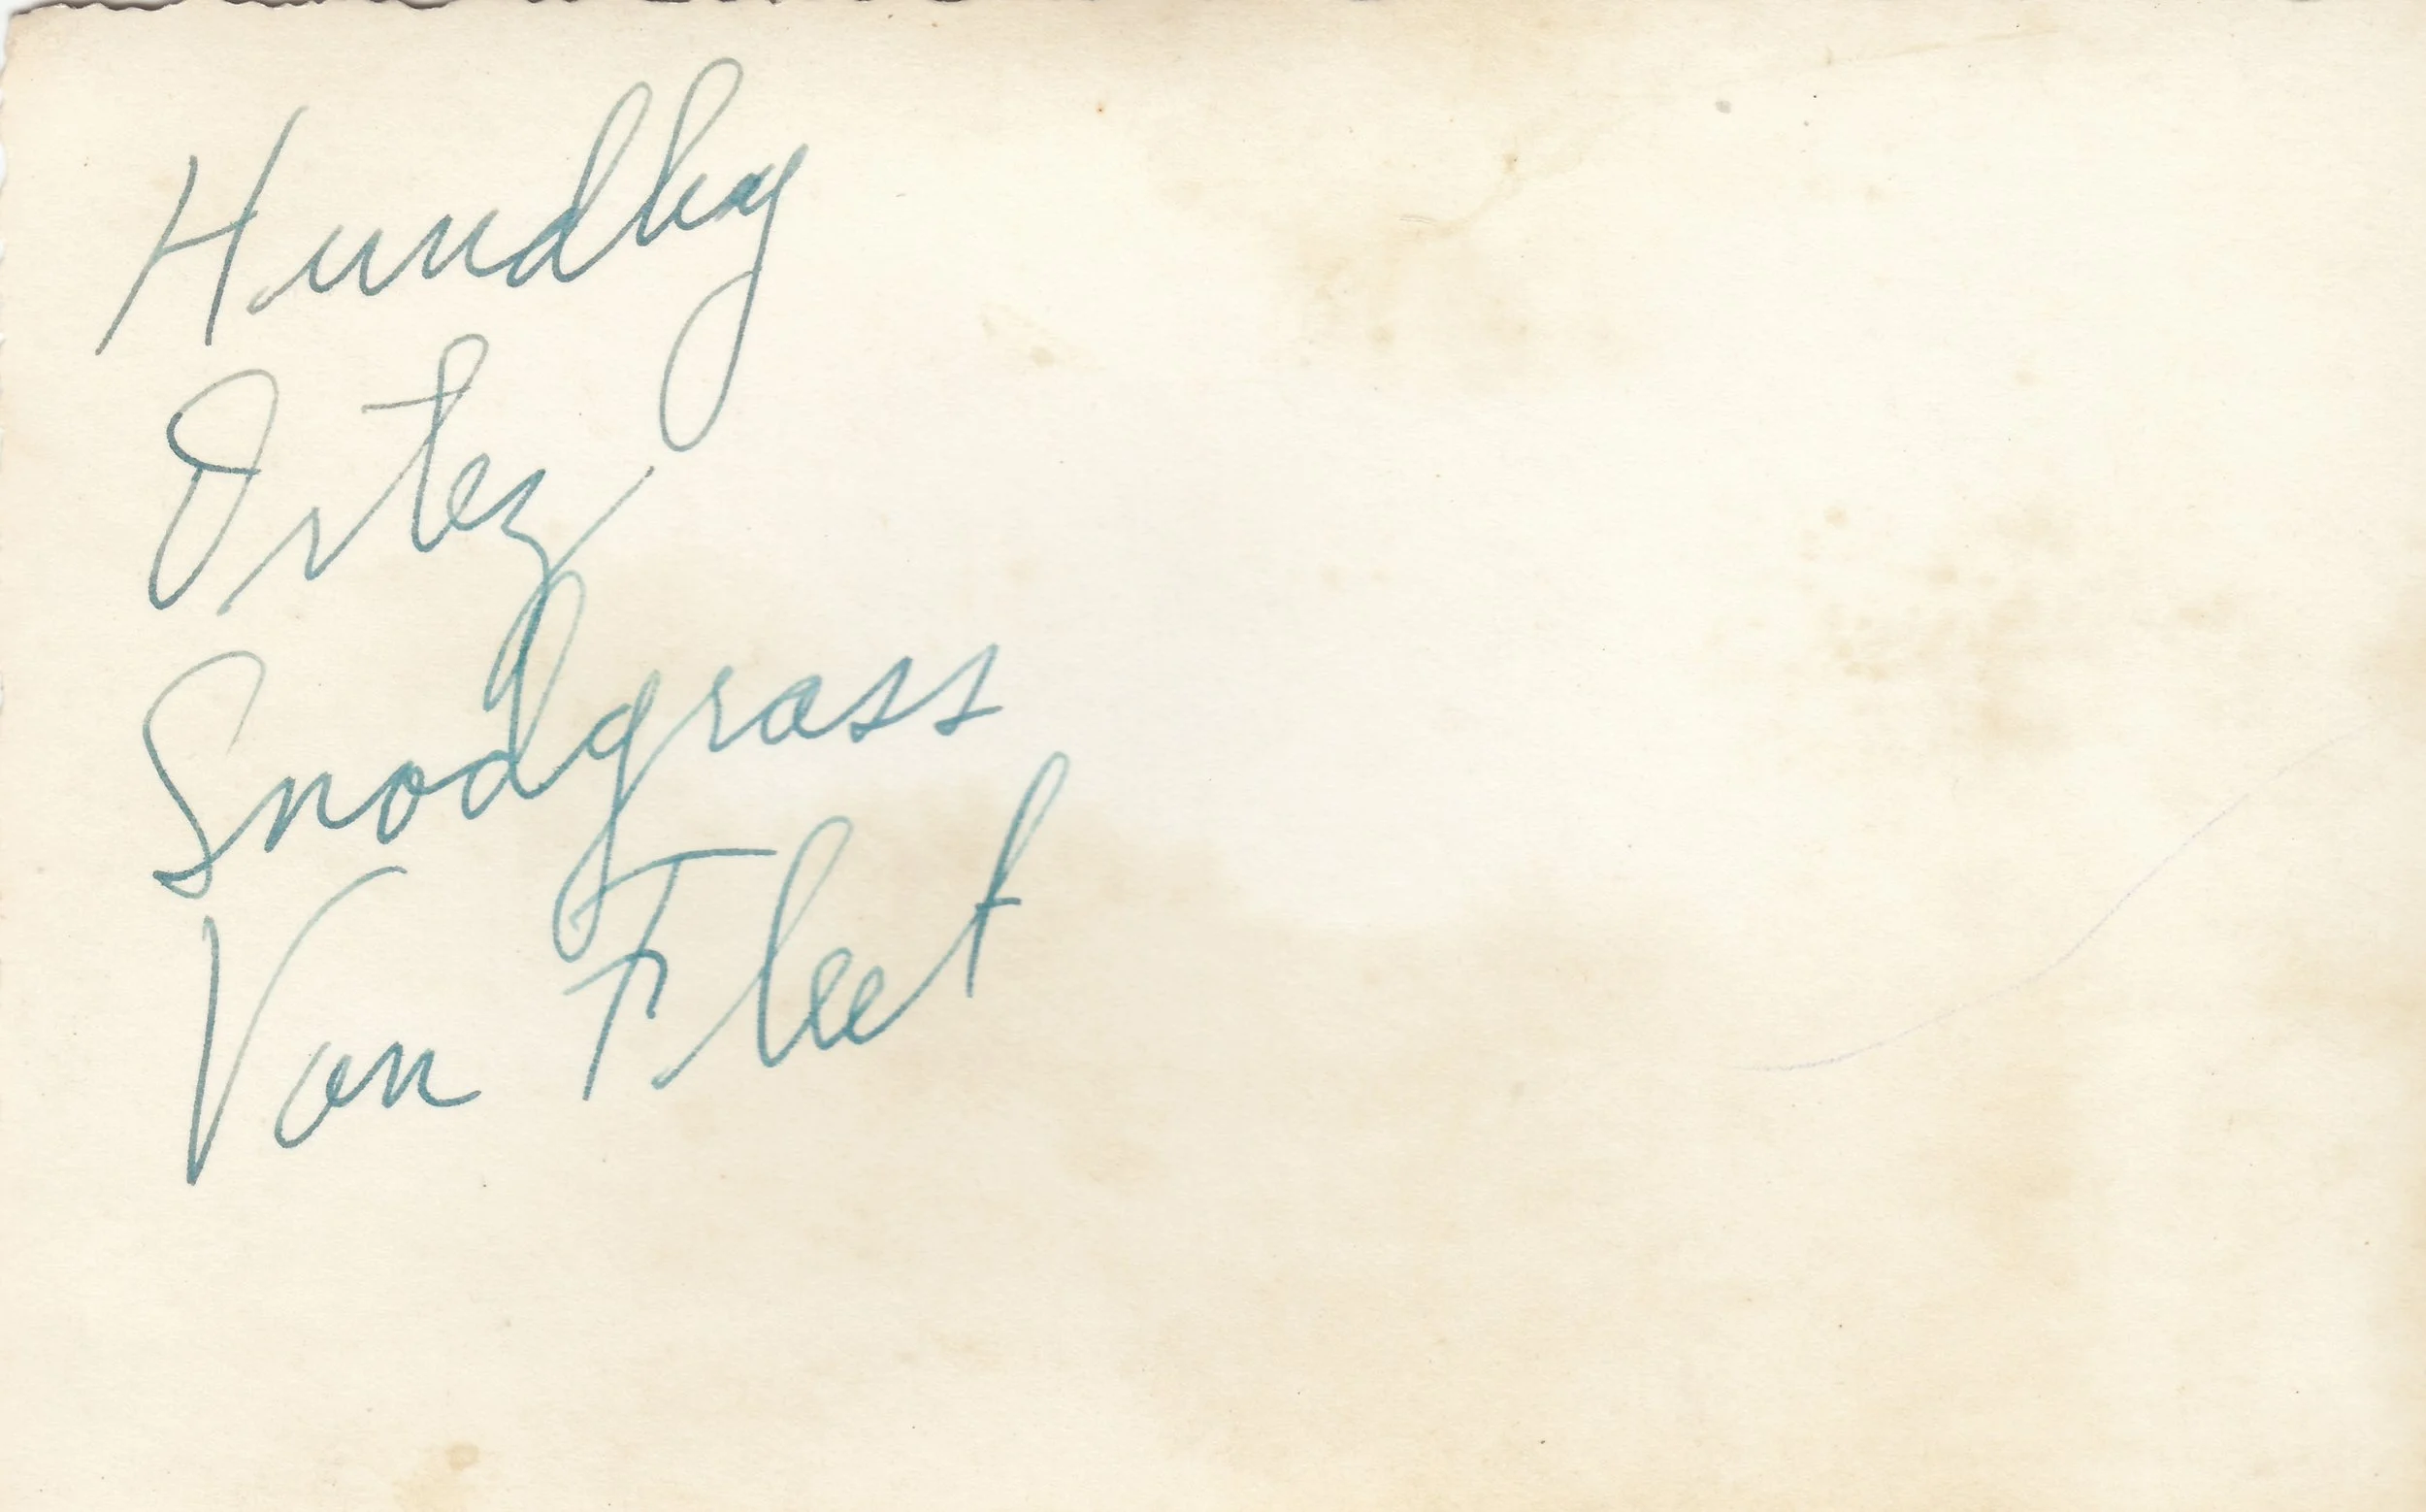 Hundley
Ortez
Snodgrass
Van Fleet